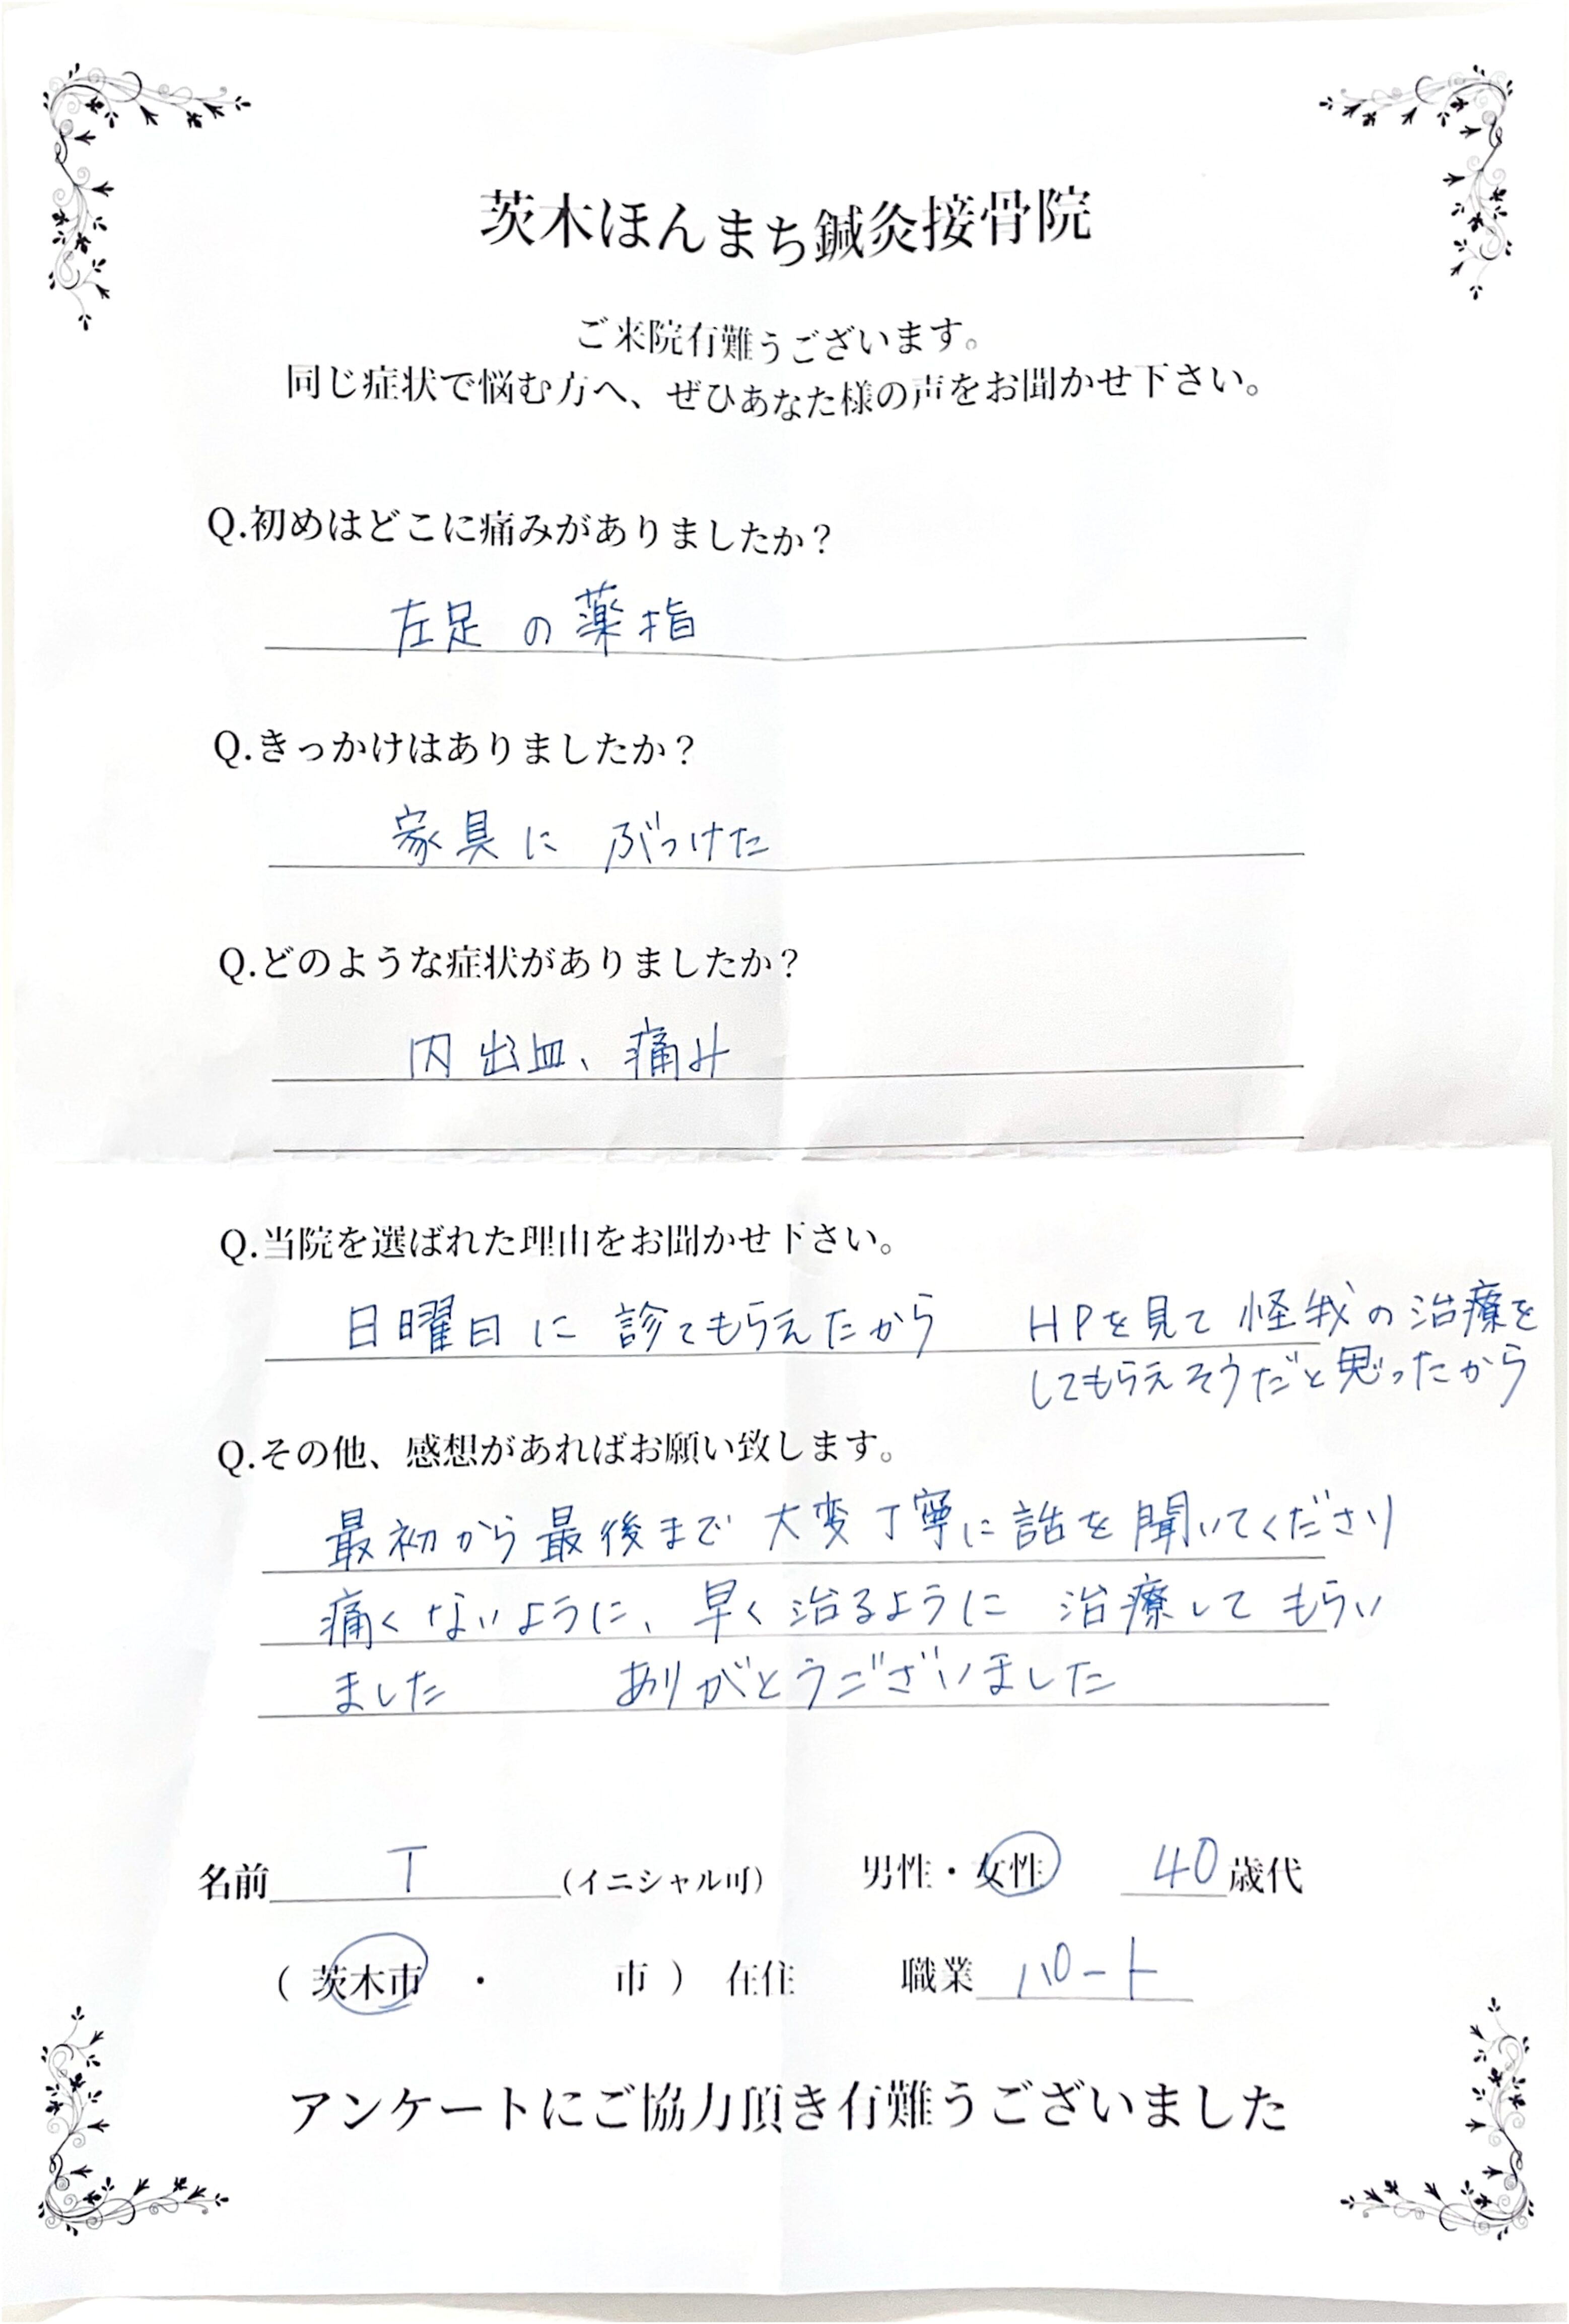 茨木ほんまち鍼灸接骨院
ご来院有難うございます。
同じ症状で悩む方へ、ぜひあなた様の声をお聞かせ下さい。
Q.初めはどこに痛みがありましたか?
左足の薬指
Q.きっかけはありましたか?
家具に ぶつけた
Q.どのような症状がありましたか?
内出血、痛み
Q.当院を選ばれた理由をお聞かせ下さい。
日曜日に 診てもらえたから HPを見て 怪我の治療を
してもらえそうだと思ったから
Q.その他、感想があればお願い致します。
最初から最後まで 大変丁寧に話を聞いてくださり
痛くないように、早く治るように 治療してもらい
ました ありがとうございました
名前 T (イニシャル可) 男性・女性 40歳代
(茨木市 ・ 市) 在住 職業 パート
アンケートにご協力頂き有難うございました